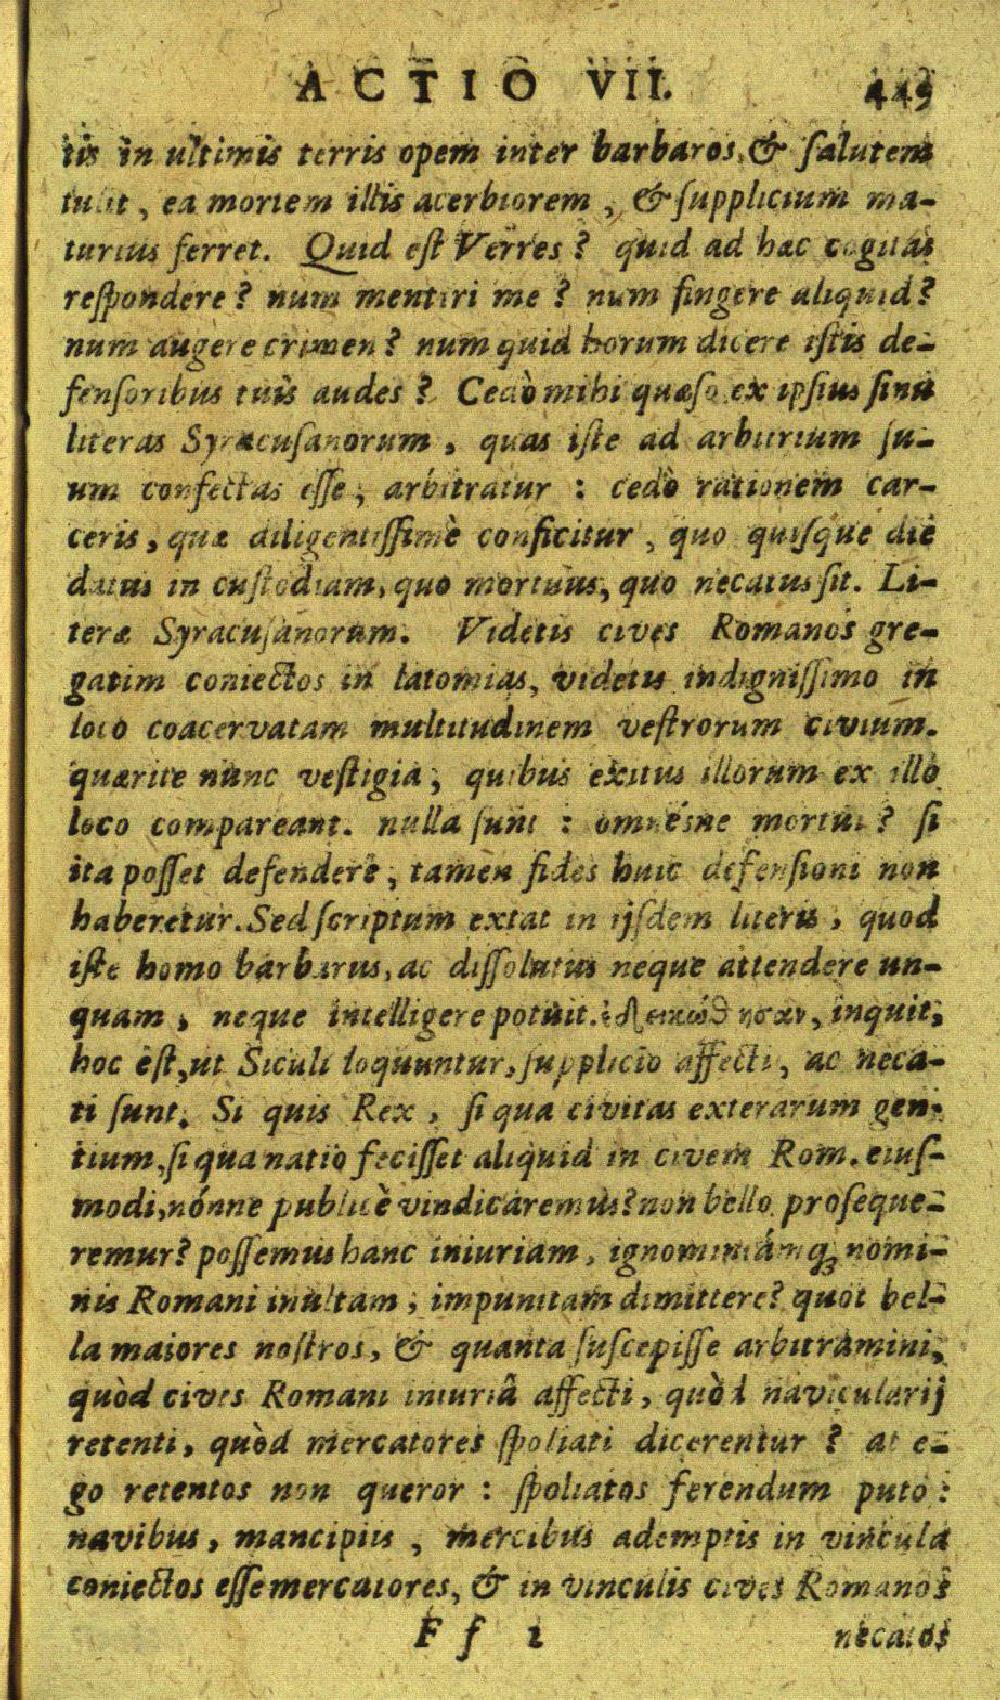 ACTIO VII. 449
tis in ultimis terris opem inter barbaros, & salutem
tulit, ea mortem illis acerbiorem, & supplicium ma-
turius ferret. Quid est Verres? quid ad hæc cogitas
respondere? num mentiri me? num fingere aliquid?
num augere crimen? num quid horum dicere istis de-
fensoribus tuis audes? Cedò mihi quæso ex ipsius sinu
literas Syracusanorum, quas iste ad arbitrium su-
um confectas esse, arbitratur: cedò rationem car-
ceris, quæ diligentissimè conficitur, quo quisque die
datus in custodiam, quo mortuus, quo necatus sit. Li-
teræ Syracusanorum. Videtis cives Romanos gre-
gatim coniectos in latomias, videtis indignissimo in
loco coacervatam multitudinem vestrorum civium.
quærite nunc vestigia, quibus exitus illorum ex illo
loco compareant. nulla sunt: omnésne mortui? si
ita posset defendere, tamen fides huic defensioni non
haberetur. Sed scriptum extat in ijsdem literis, quod
iste homo barbarus, ac dissolutus neque attendere un-
quam, neque intelligere potuit. inquit,
hoc est, ut Siculi loquuntur, supplicio affecti, ac neca-
ti sunt. Si quis Rex, si qua civitas exterarum gen-
tium, si qua natio fecisset aliquid in civem Rom. eius-
modi, nónne publicè vindicaremus? non bello proseque-
remur? possemus hanc iniuriam, ignominiámq; nomi-
nis Romani inultam, impunitam dimittere? quot bel-
la maiores nostros, & quanta suscepisse arbitramini,
quòd cives Romani iniuriâ affecti, quòd navicularij
retenti, quòd mercatores spoliati dicerentur? at e-
go retentos non queror: spoliatos ferendum puto:
navibus, mancipiis, mercibus ademptis in vincula
coniectos esse mercatores, & in vinculis cives Romanos
F f 1 necatos